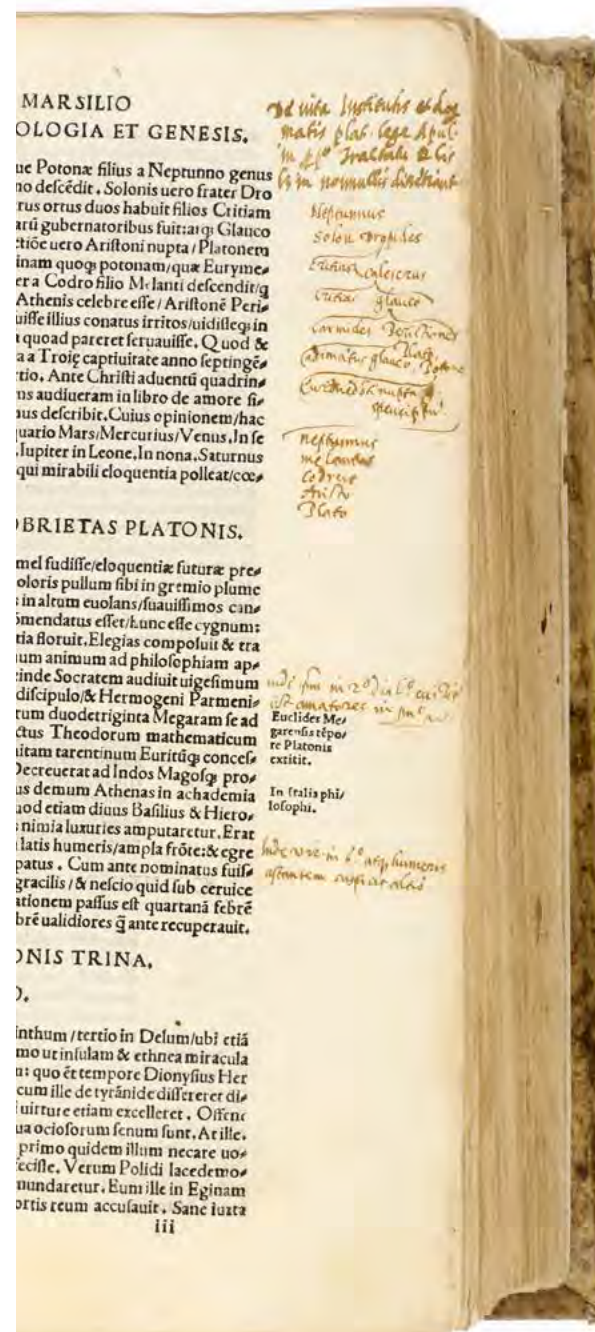 MARSILIO
OLOGIA ET GENESIS.
ue Potonæ filius a Neptunno genus
no defcédit. Solonis uero frater Dro
rus ortus duos habuit filios Critiam
arū gubernatoribus fuit: atq; Glauco
ctiōe uero Ariſtoni nupta / Platonem
inam quoq; potonam/quæ Euryme⸗
er a Codro filio Melanti deſcendit/q
Athenis celebre eſſe / Ariſtonē Peri⸗
uiſſe illius conatus irritos/uidiſſeq; in
quoad pareret ſeruauiſſe. Quod &
a a Troię captiuitate anno ſeptingē⸗
rtio. Ante Chriſti aduentū quadrin⸗
ns audiueram in libro de amore ſi⸗
nus deſcribit. Cuius opinionem/hac
quario Mars/Mercurius/Venus. In ſe
. Iupiter in Leone. In nona. Saturnus
qui mirabili eloquentia polleat/cœ⸗
OBRIETAS PLATONIS.
mel fudiſſe/eloquentiæ futuræ pre⸗
oloris pullum ſibi in gremio plume
s in altum euolans/ſuauiſſimos can⸗
ōmendatus eſſet/hunc eſſe cygnum:
tia floruit. Elegias compoſuit & tra
uum animum ad philoſophiam ap⸗
einde Socratem audiuit uigeſimum
diſcipulo/& Hermogeni Parmeni⸗
rum duodetriginta Megaram ſe ad
ctus Theodorum mathematicum
uitam tarentinum Euritūq; conceſ⸗
Decreuerat ad Indos Magoſq; pro⸗
us demum Athenas in achademia
uod etiam diuus Baſilius & Hiero⸗
s nimia luxuries amputaretur. Erat
latis humeris/ampla frōte: & egre
patus. Cum ante nominatus fuiſ⸗
gracilis / & neſcio quid ſub ceruice
ationem paſſus eſt quartanā febrē
brē ualidiores q̄ ante recuperauit.
ONIS TRINA.
O.
inthum / tertio in Delum/ubi etiā
mo ut inſulam & ethnea miracula
n: quo ēt tempore Dionyſius Her
cum ille de tyrānide diſſereret di⸗
uirtute etiam excelleret. Offenſ
ua ocioſorum ſenum ſunt. At ille.
primo quidem illum necare uo⸗
feciſſe. Verum Polidi lacedemo⸗
mundaretur. Eum ille in Eginam
ortis reum accuſauit. Sane iuxta
iii
De uita
plat. lege Apul.
in nonnullis
Neptunnus
Solon Dropides
Critias
Critias glauco
Carmides
glauco Plato. Potone
Eurimedon nupta
speusippus
neptunnus
melantus
Codrus
Aristo
Plato
Euclides Me⸗
garenſis tēpo⸗
re Platonis
extitit.
In Italis phi⸗
loſophi.
humeris